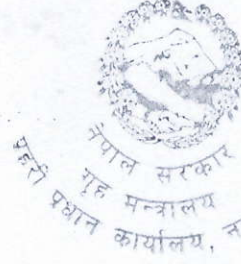 नेपाल सरकार
गृह मन्त्रालय
प्रहरी प्रधान कार्यालय,